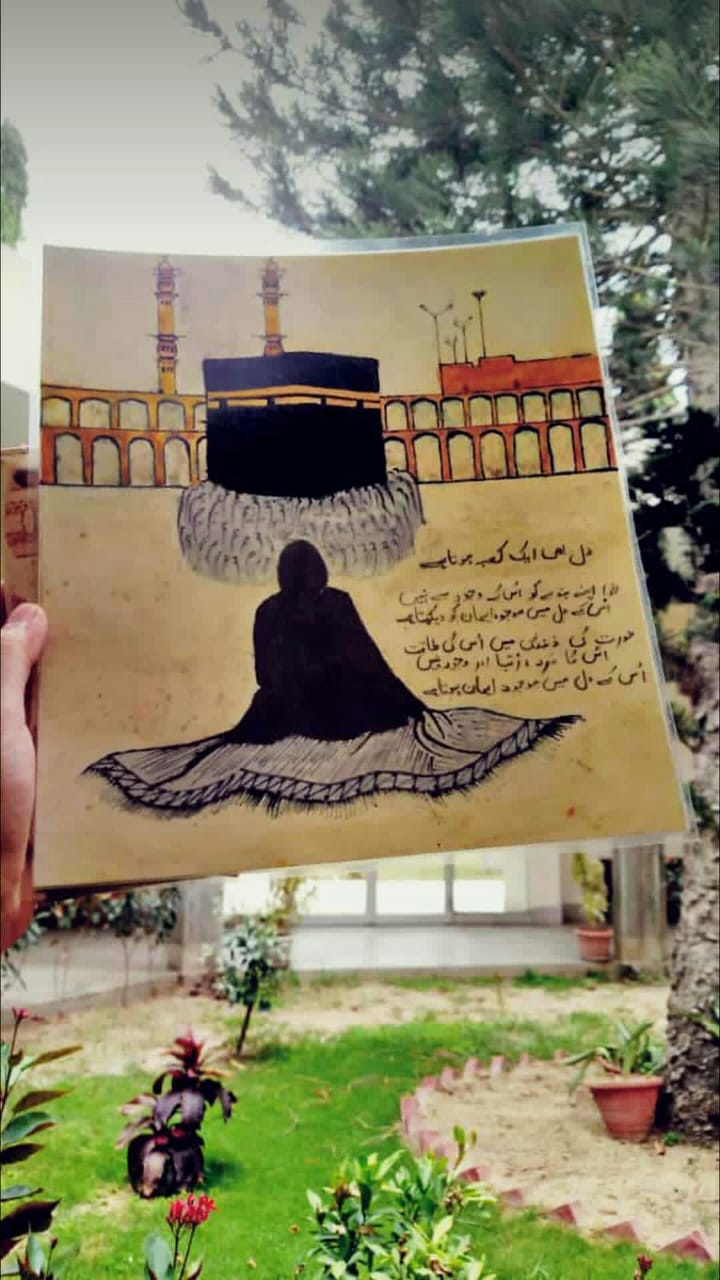 دل بھی ایک کعبہ ہوتا ہے
اپنے بندے کو اُس کے وجود سے نہیں
اُس کے دل میں موجود ایمان کو دیکھتا ہے
عورت کی زندگی میں اُس کی طاقت
اُس کا مرد، رُتبا اور وجود نہیں
اُس کے دل میں موجود ایمان ہوتا ہے